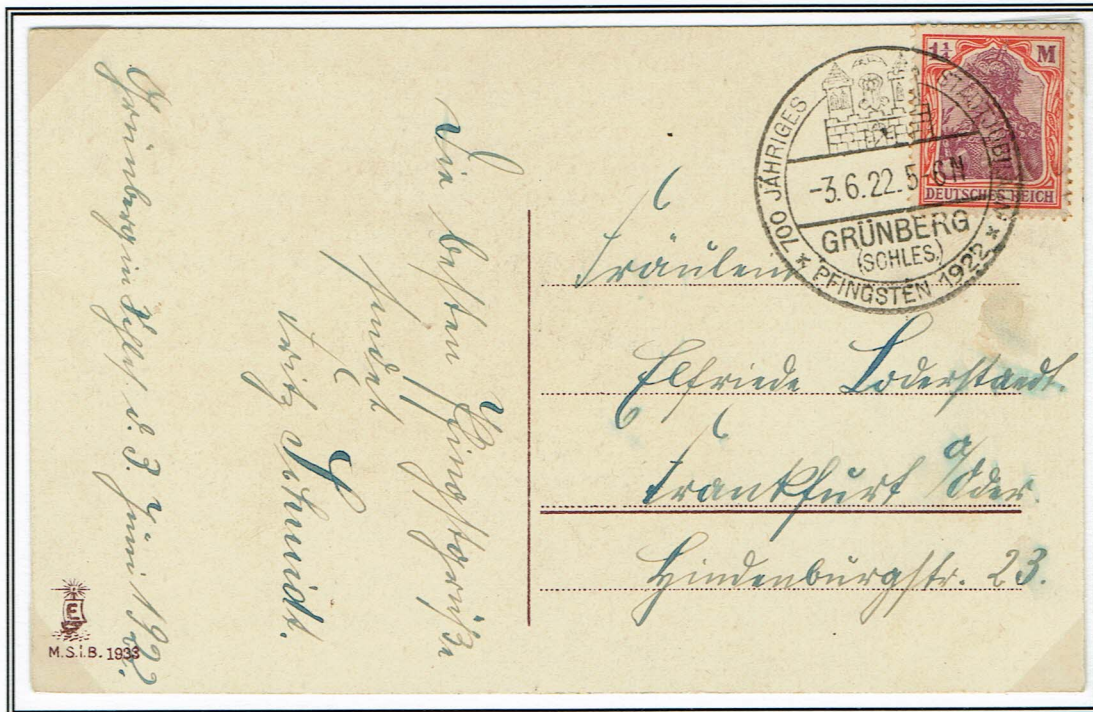 Grünberg in Schles. d. 3. Juni 1922.
Die besten Pfingstgrüße
sendet
Fritz Schmidt.
M.S.i.B. 1933
E
1¼ M
DEUTSCHES REICH
700 JÄHRIGES STADTJUBILÄUM
-3.6.22.5-6N
GRÜNBERG
(SCHLES.)
* PFINGSTEN 1922 *
Fräulein
Elfriede Loderstaedt.
Frankfurt a/Oder.
Hindenburgstr. 23.